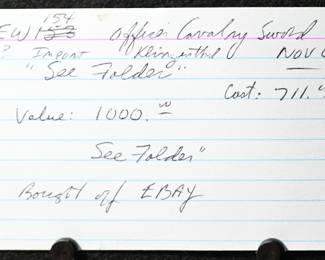 154
EW 153 Officer Cavalry Sword
? Import Klingenthal NOV
"See Folder"
Cost: 711.
Value: 1000.00
See Folder"
Bought off EBAY